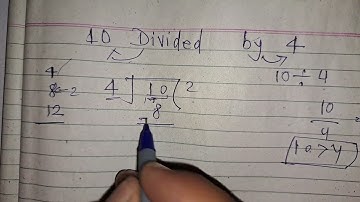 10 Divided by 4
10 ÷ 4
4
8 - 2
12
4 ) 10 ( 2
8
10
4
10 > 4